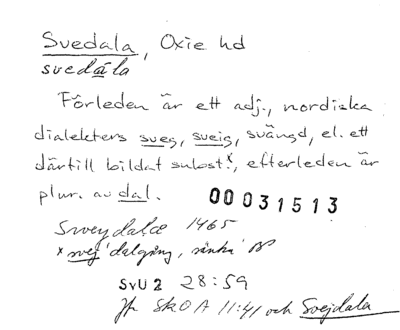 Svedala, Oxie hd
svedåla
Förleden är ett adj., nordiska
dialekters sveg, sveig, svängd, el. ett
därtill bildat subst.ˣ, efterleden är
plur. av dal.
00031513
Sweydalæ 1465
ˣ svej 'dalgång, sänka'
SvU 2 28:59
Jfr SkOA 11:41 och Svejdala